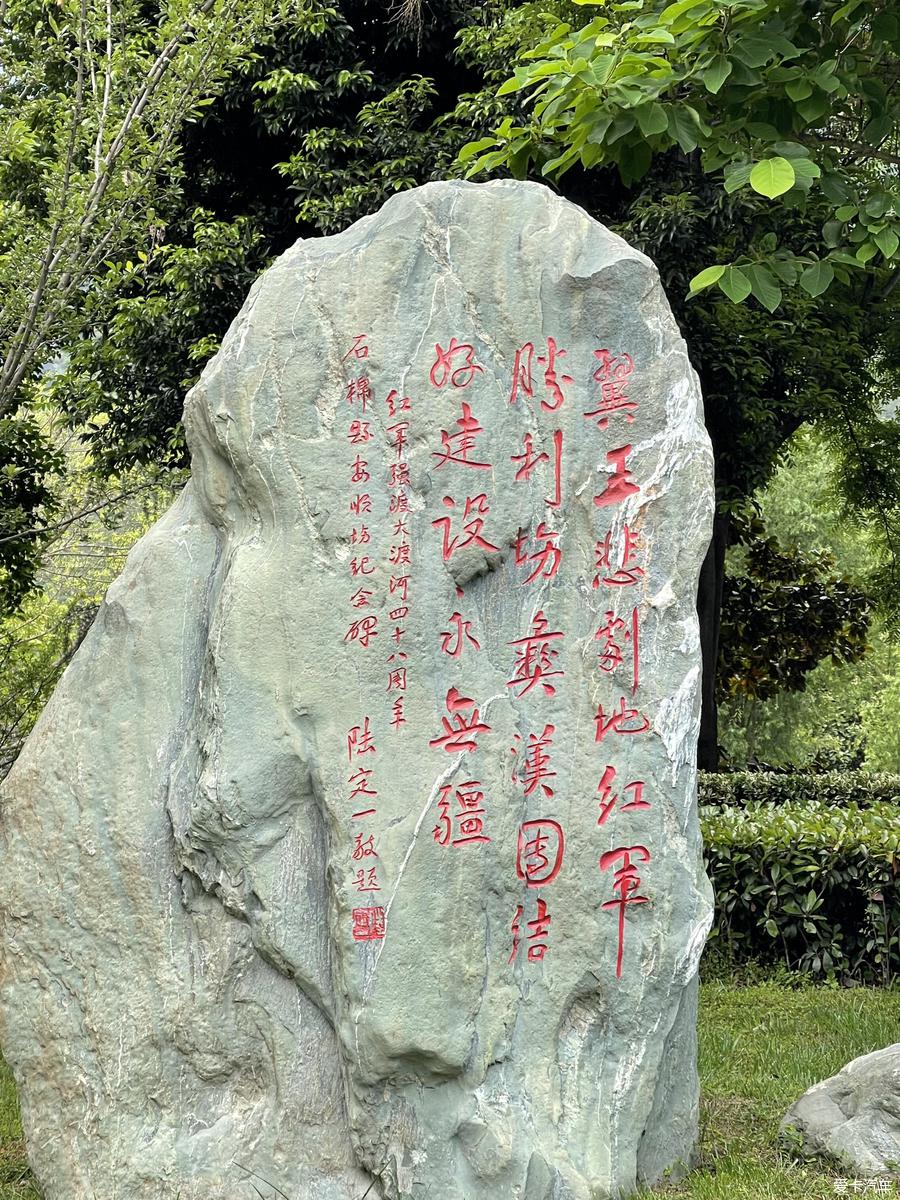 翼王悲劇地红軍
勝利坊彞漢團结
好建设永無疆
红军强渡大渡河四十八周年
石棉县安顺坊纪念碑
陆定一敬题
爱卡汽车